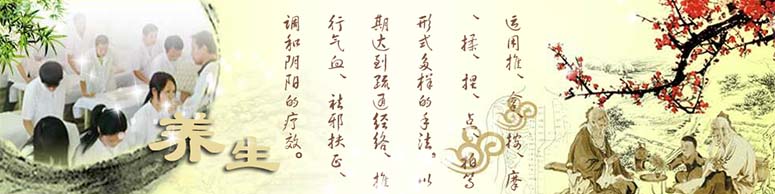 运用推、拿、按、摩
、揉、捏、点、拍等
形式多样的手法。以
期达到疏通经络、推
行气血、祛邪扶正、
调和阴阳的疗效。
养生